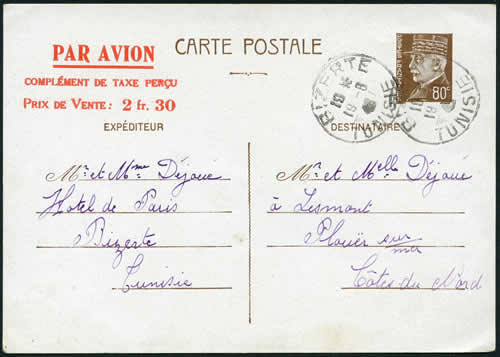 PAR AVION
COMPLÉMENT DE TAXE PERÇU
PRIX DE VENTE: 2 fr. 30
CARTE POSTALE
80c
BIZERTE
TUNISIE
BIZERTE
TUNISIE
EXPÉDITEUR
Mr et Mme Déjoué
Hotel de Paris
Bizerte
Tunisie
DESTINATAIRE
Mr et Melle Déjoué
à Lesmont
Plouër sur
mer
Côtes du Nord